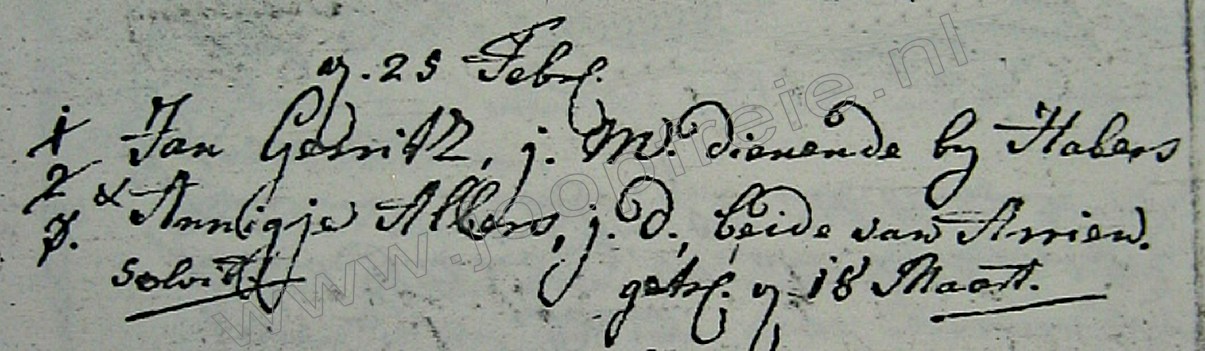 ey. 25 Febr.
1 Jan Gerritz, j. M. dienende by Habers
2 & Annigje Albers, j. d., beide van Arrien.
3.
solvit. getr. ey 18 Maart.
www.joopfreie.nl